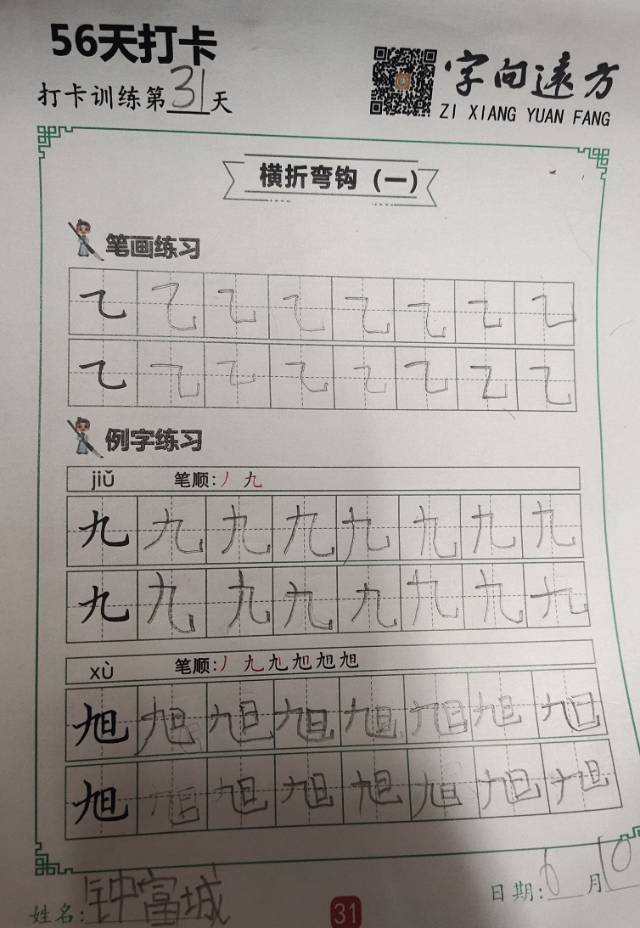 56天打卡
打卡训练第31天
字向远方
ZI XIANG YUAN FANG
横折弯钩（一）
笔画练习
乙 乙 乙 乙 乙 乙 乙 乙
乙 乙 乙 乙 乙 乙 乙 乙
例字练习
jiǔ 笔顺:丿九
九 九 九 九 九 九 九 九
九 九 九 九 九 九 九 九
xù 笔顺:丿九九旭旭旭
旭 旭 旭 旭 旭 旭 旭 旭
旭 旭 旭 旭 旭 旭 旭 旭
姓名:钟富城
31
日期:6月10